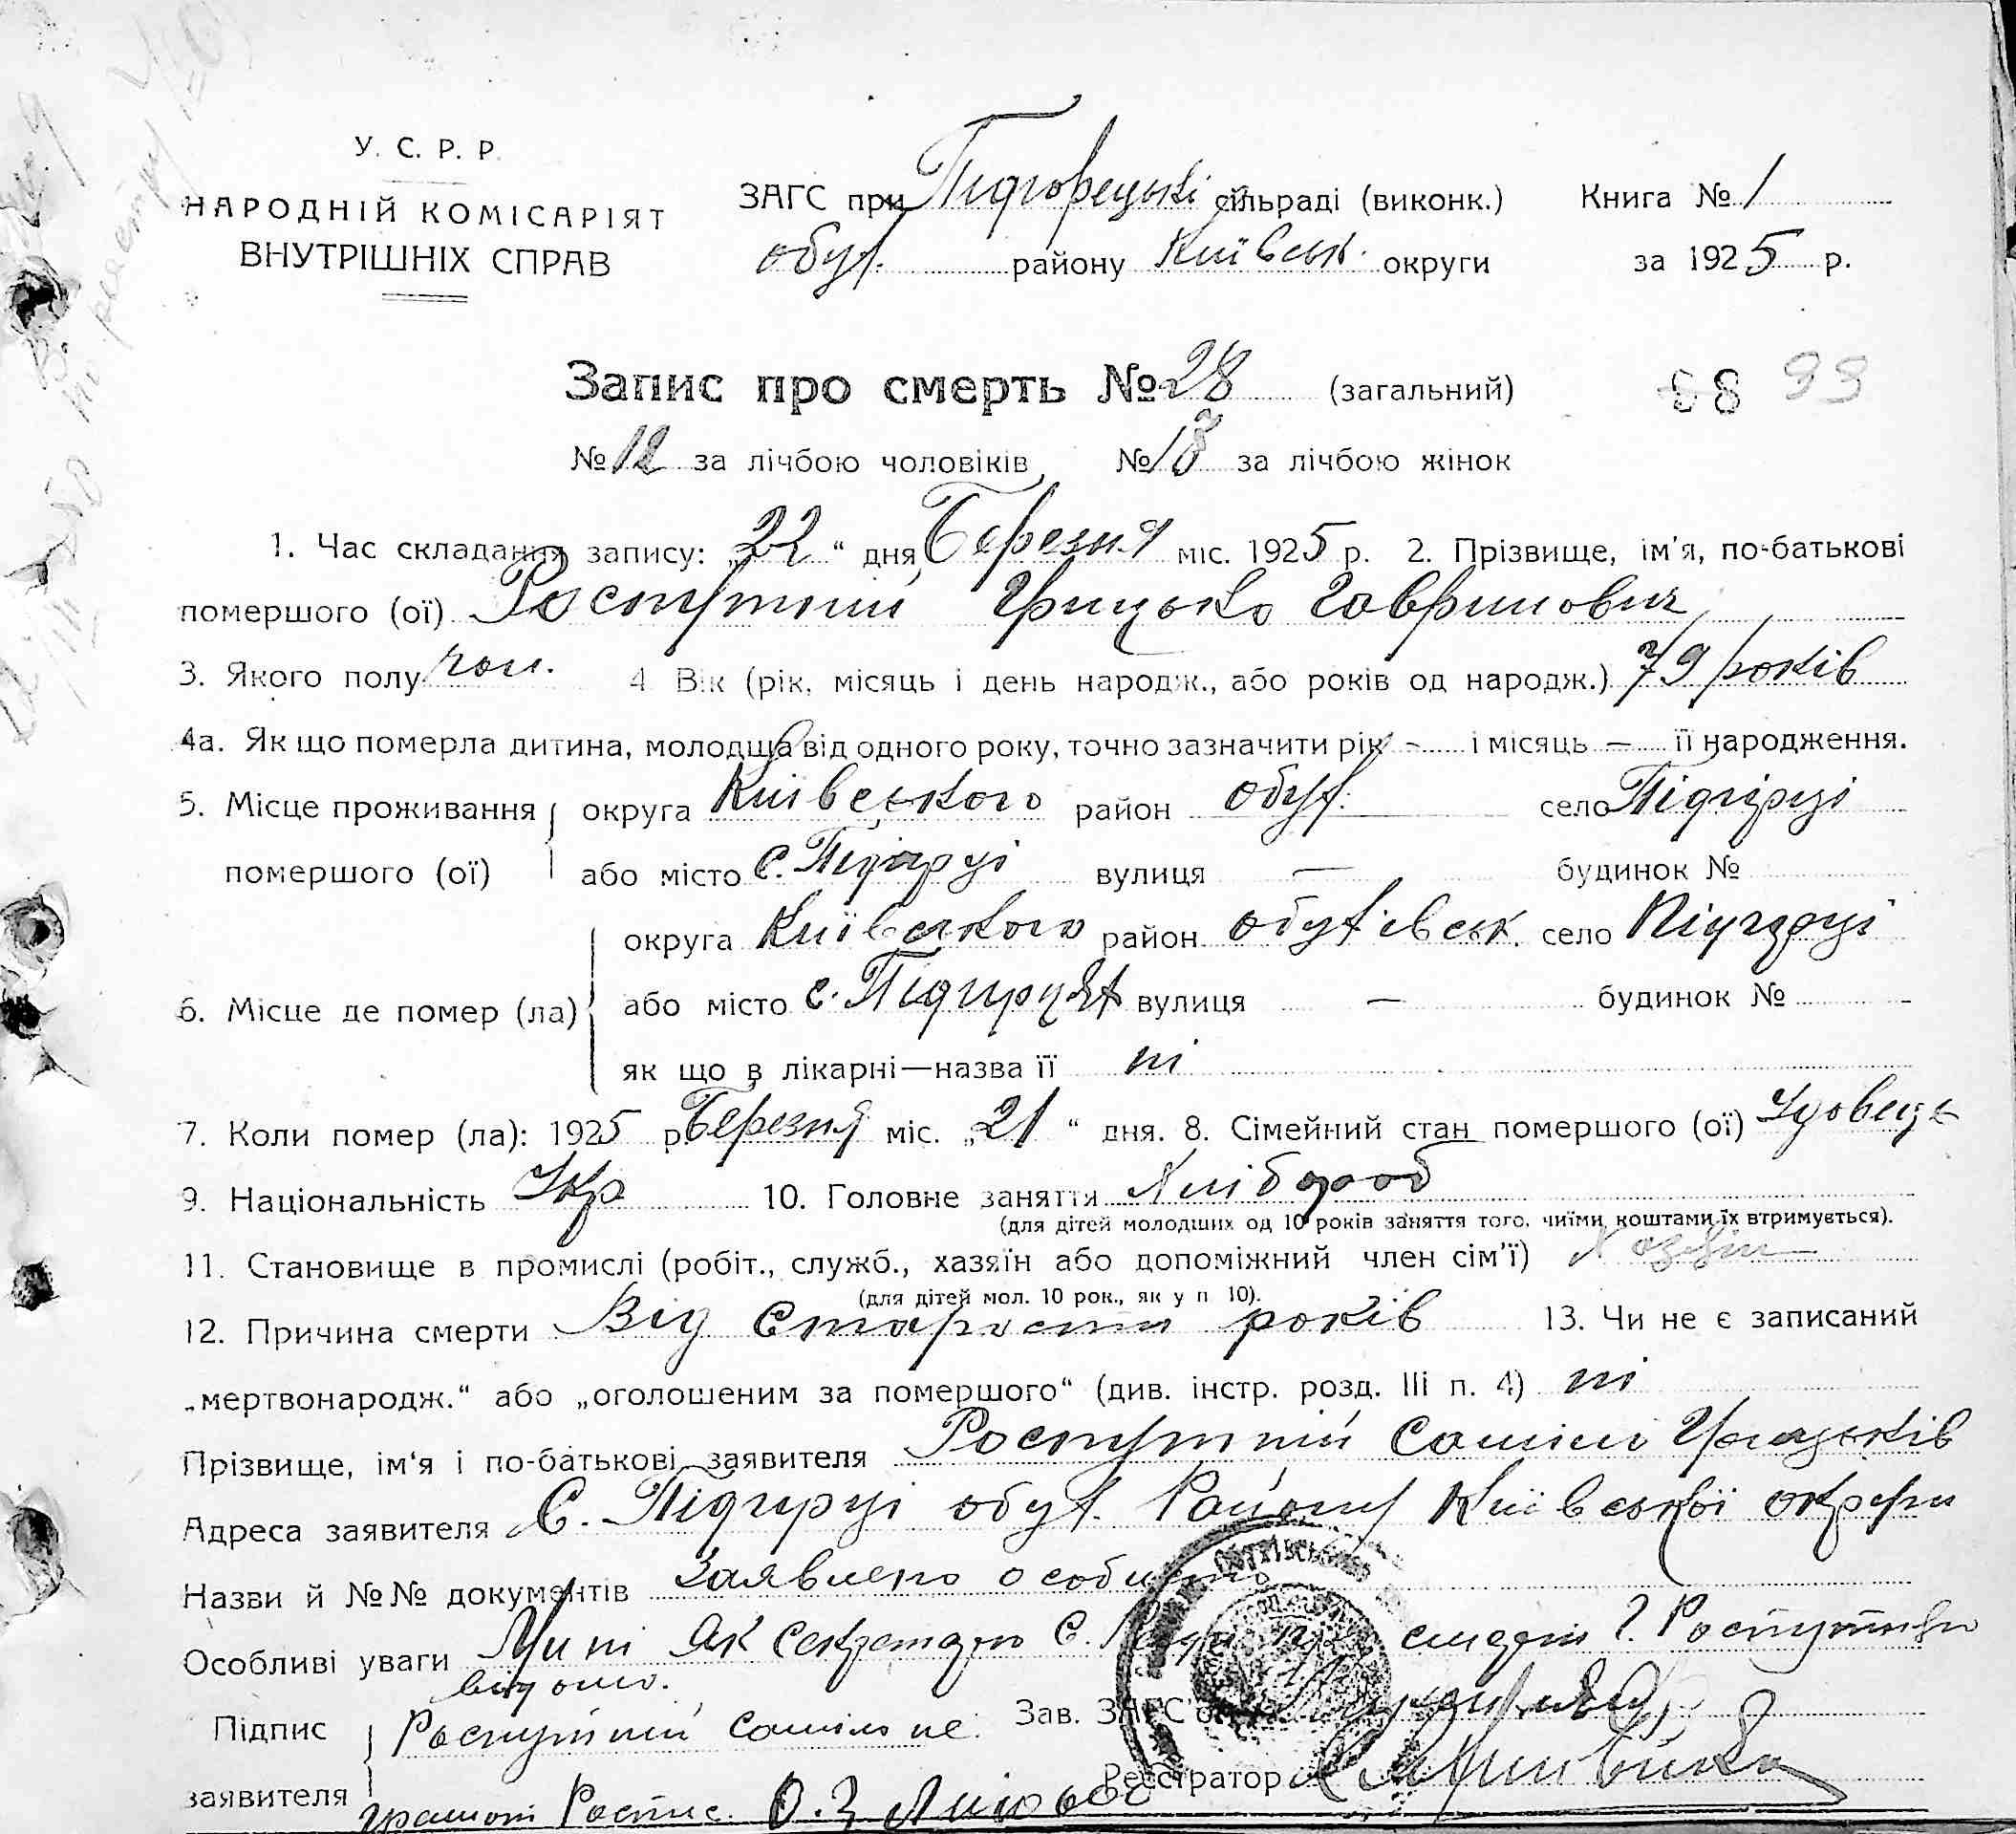 У. С. Р. Р.
НАРОДНІЙ КОМІСАРІЯТ
ВНУТРІШНІХ СПРАВ
ЗАГС при Підгорецькі сільраді (виконк.) Книга № 1
обух. району Київськ. округи за 1925 р.
Запис про смерть № 28 (загальний) 88 99
№ 12 за лічбою чоловіків № за лічбою жінок
1. Час складання запису: „22“ дня Березня міс. 1925 р. 2. Прізвище, ім'я, по-батькові
помершого (ої) Роспутній Грицько Гаврилович
3. Якого полу чол. 4 Вік (рік, місяць і день народж., або років од народж.) 79 років
4а. Як що померла дитина, молодща від одного року, точно зазначити рік - і місяць — її народження.
5. Місце проживання округа Київського район обух. село Підгірці
помершого (ої) або місто с. Підгірці вулиця — будинок №
округа Київського район обухівськ. село Підгірці
6. Місце де помер (ла) або місто с. вулиця — будинок № -
як що в лікарні—назва її ні
7. Коли помер (ла): 1925 р. Березня міс. „21“ дня. 8. Сімейний стан помершого (ої) Удовець
9. Національність Укр 10. Головне заняття Хлібороб
(для дітей молодших од 10 років заняття того, чиїми коштами їх втримується).
11. Становище в промислі (робіт., служб., хазяїн або допоміжний член сім'ї) Хазяїн
(для дітей мол. 10 рок., як у п 10).
12. Причина смерти Від Старости років 13. Чи не є записаний
„мертвонародж.“ або „оголошеним за помершого“ (див. інстр. розд. III п. 4) ні
Прізвище, ім'я і по-батькові заявителя Роспутній Самійло Грицьків
Адреса заявителя С. Підгірці обух. Району Київської округи
Назви й №№ документів Заявлено особисто
Особливі уваги Мині як Секретарю С. Ради про смерть Г. Роспутнього
відомо.
Підпис Роспутній Самійло не Зав. ЗАГС'ом
заявителя Реєстратор
грамот Роспис.